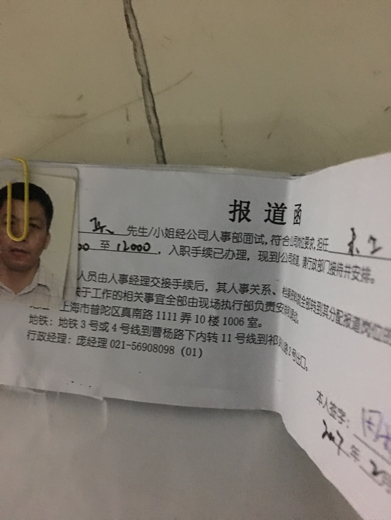 报道函
先生/小姐经公司人事部面试,符合公司的要求,担任
00 至 12000 ,入职手续已办理,现到公司报道,需行政部门接待并安排。
人员由人事经理交接手续后,其人事关系、
关于工作的相关事宜全部由现场执行部负责安排
上海市普陀区真南路 1111 弄 10 楼 1006 室。
地铁:地铁 3 号或 4 号线到曹杨路下内转 11 号线到祁
行政经理:庞经理 021-56908098 (01)
本人签字:
年